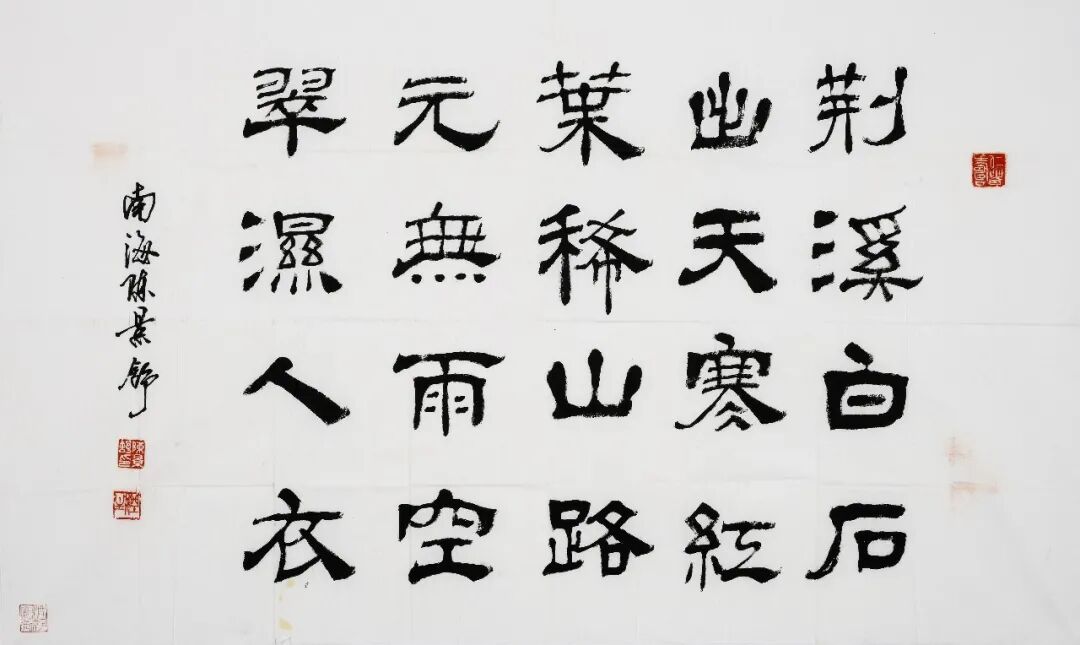 荆溪白石
出天寒紅
葉稀山路
元無雨空
翠濕人衣
南海陳景舒